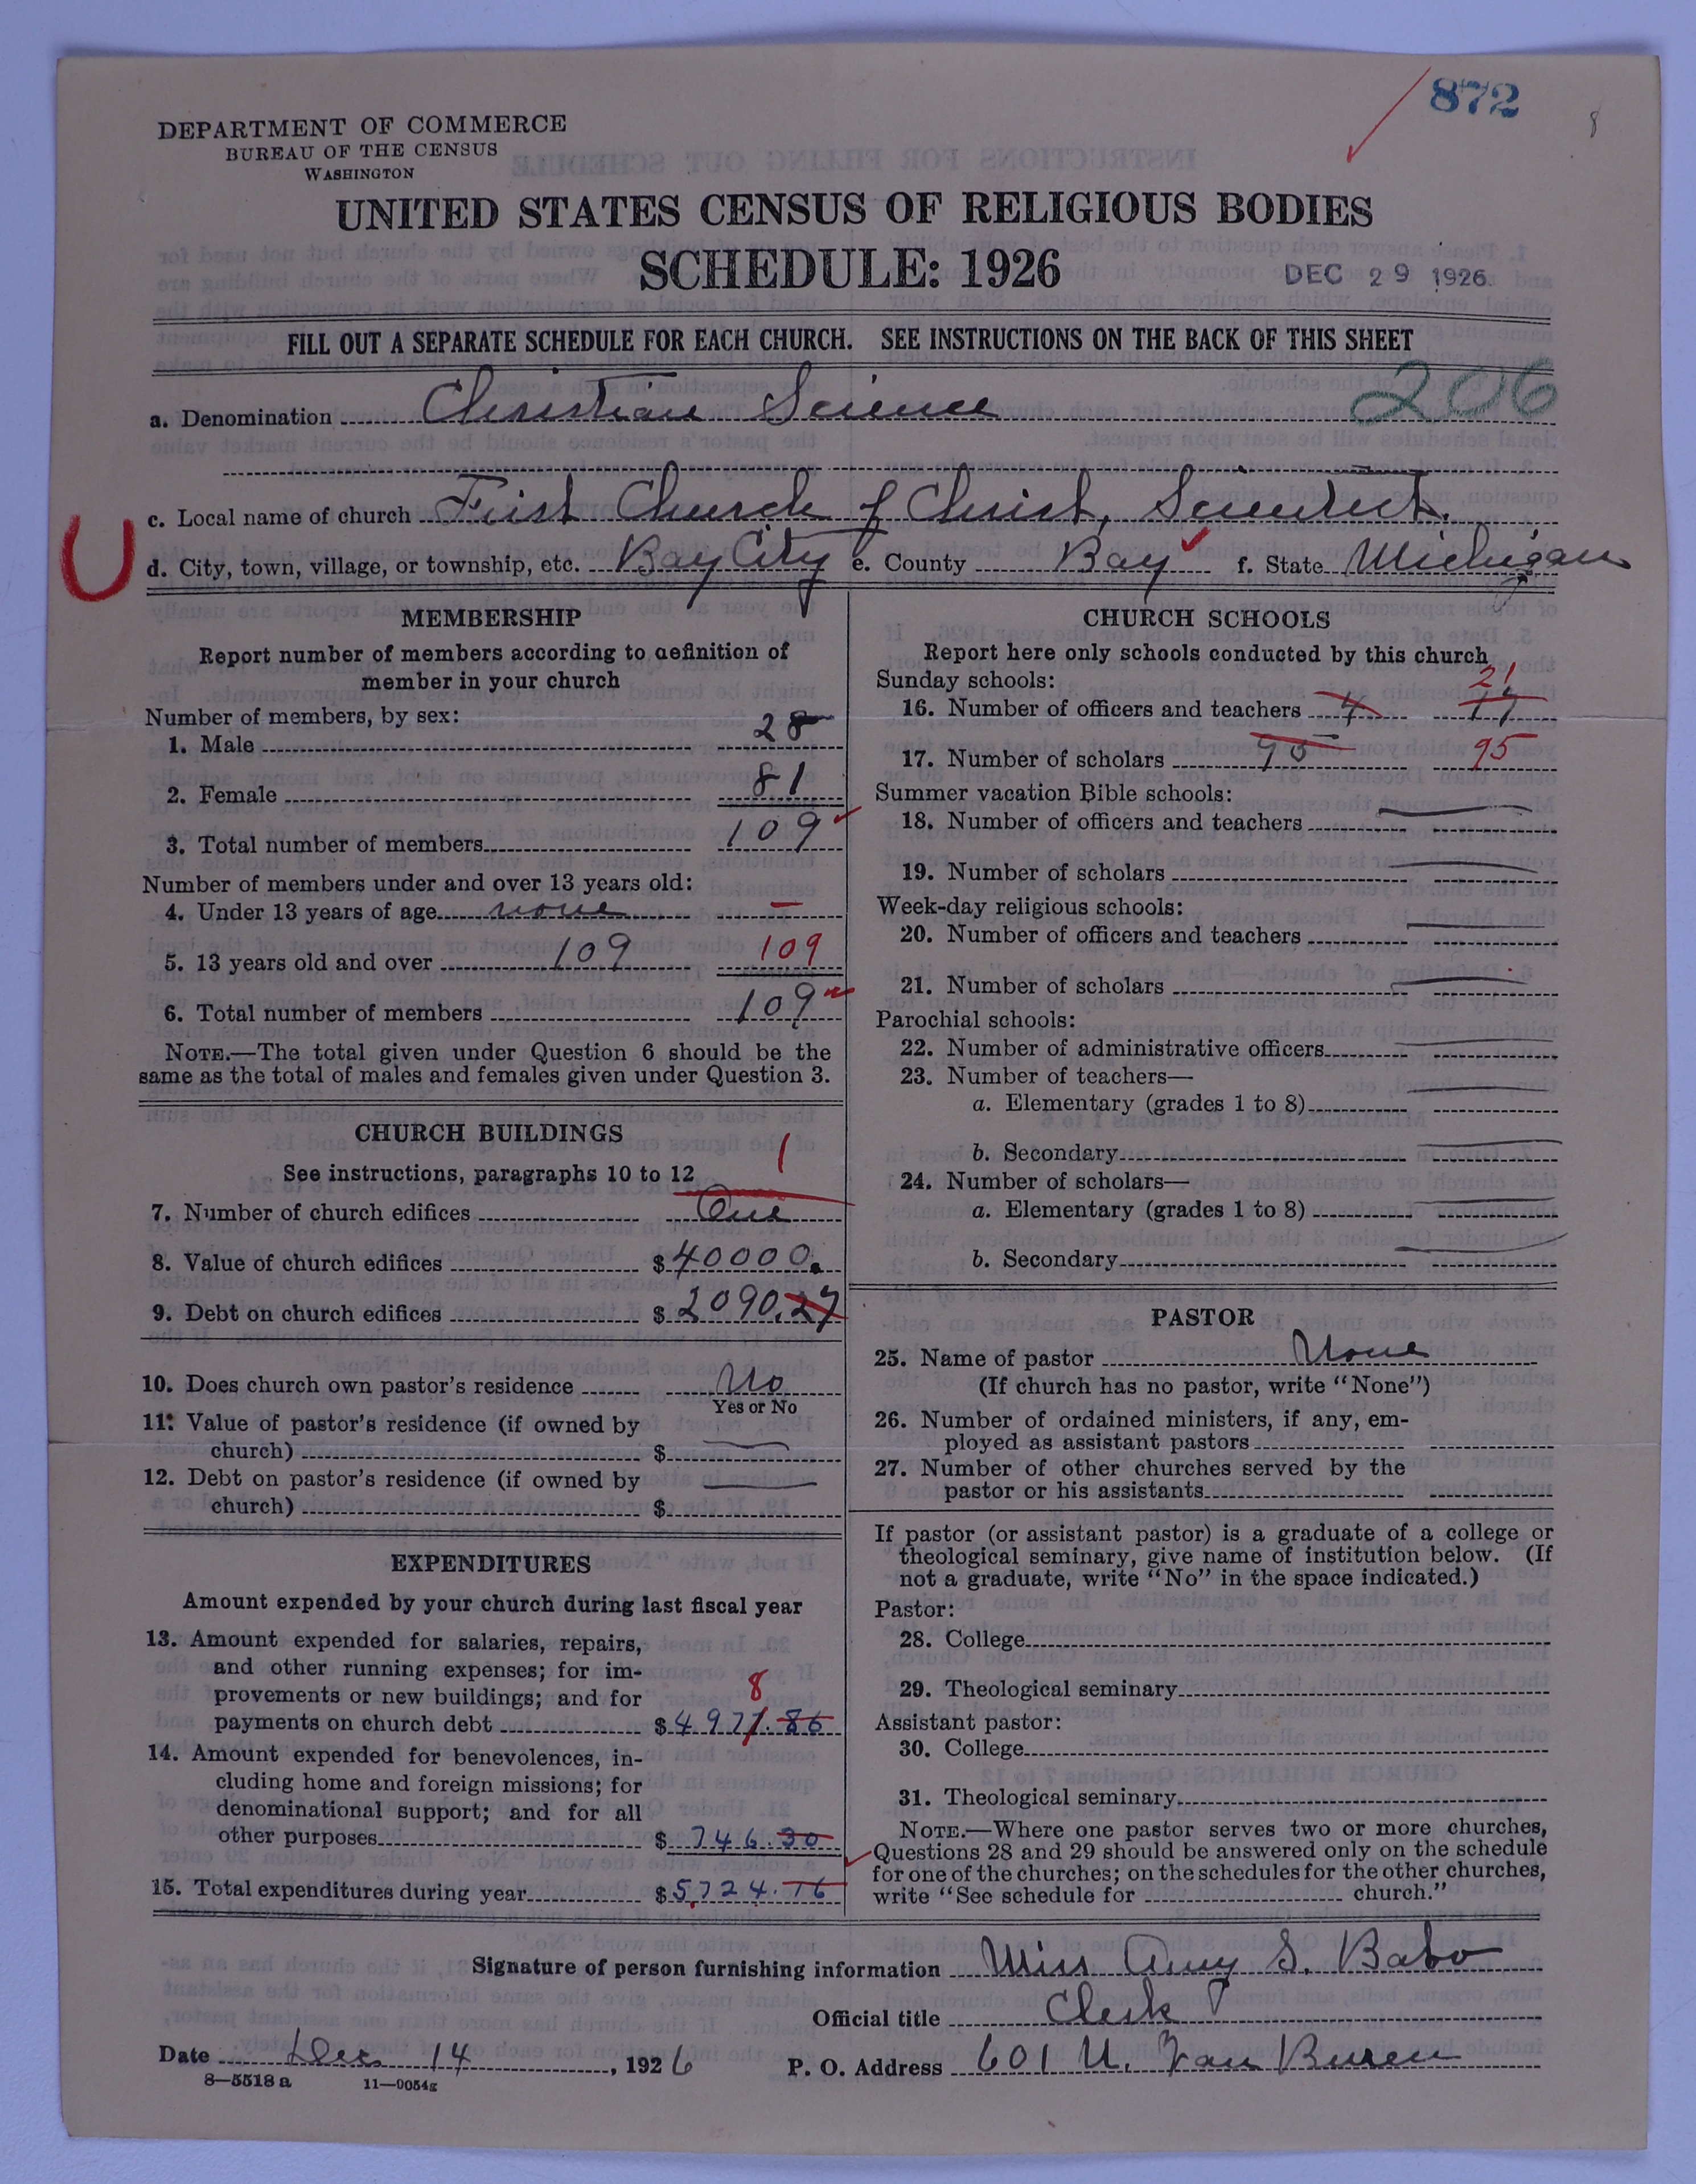 872
8
DEPARTMENT OF COMMERCE
BUREAU OF THE CENSUS
WASHINGTON
UNITED STATES CENSUS OF RELIGIOUS BODIES
SCHEDULE: 1926
DEC 29 1926
FILL OUT A SEPARATE SCHEDULE FOR EACH CHURCH. SEE INSTRUCTIONS ON THE BACK OF THIS SHEET
206
a. Denomination Christian Science
c. Local name of church First Church of Christ, Scientist.
U
d. City, town, village, or township, etc. Bay City e. County Bay f. State Michigan
MEMBERSHIP
Report number of members according to definition of
member in your church
Number of members, by sex:
1. Male 28
2. Female 81
3. Total number of members 109
Number of members under and over 13 years old:
4. Under 13 years of age none –
5. 13 years old and over 109 109
6. Total number of members 109
NOTE.—The total given under Question 6 should be the
same as the total of males and females given under Question 3.
CHURCH BUILDINGS
See instructions, paragraphs 10 to 12
1
7. Number of church edifices One
8. Value of church edifices $40000.
9. Debt on church edifices $2090.27
10. Does church own pastor's residence No
Yes or No
11. Value of pastor's residence (if owned by
church) $
12. Debt on pastor's residence (if owned by
church) $
EXPENDITURES
Amount expended by your church during last fiscal year
13. Amount expended for salaries, repairs,
and other running expenses; for im-
provements or new buildings; and for
8
payments on church debt $4977.86
14. Amount expended for benevolences, in-
cluding home and foreign missions; for
denominational support; and for all
other purposes $746.30
15. Total expenditures during year $5724.16
CHURCH SCHOOLS
Report here only schools conducted by this church
Sunday schools:
21
16. Number of officers and teachers 4 17
17. Number of scholars 95 95
Summer vacation Bible schools:
18. Number of officers and teachers
19. Number of scholars
Week-day religious schools:
20. Number of officers and teachers
21. Number of scholars
Parochial schools:
22. Number of administrative officers
23. Number of teachers—
a. Elementary (grades 1 to 8)
b. Secondary
24. Number of scholars—
a. Elementary (grades 1 to 8)
b. Secondary
PASTOR
25. Name of pastor None
(If church has no pastor, write "None")
26. Number of ordained ministers, if any, em-
ployed as assistant pastors
27. Number of other churches served by the
pastor or his assistants
If pastor (or assistant pastor) is a graduate of a college or
theological seminary, give name of institution below. (If
not a graduate, write "No" in the space indicated.)
Pastor:
28. College
29. Theological seminary
Assistant pastor:
30. College
31. Theological seminary
NOTE.—Where one pastor serves two or more churches,
Questions 28 and 29 should be answered only on the schedule
for one of the churches; on the schedules for the other churches,
write "See schedule for church."
Signature of person furnishing information Miss Amy S. Babo
Official title Clerk
Date Dec 14, 1926 P. O. Address 601 N. Van Buren
8—5518 a 11—9054g